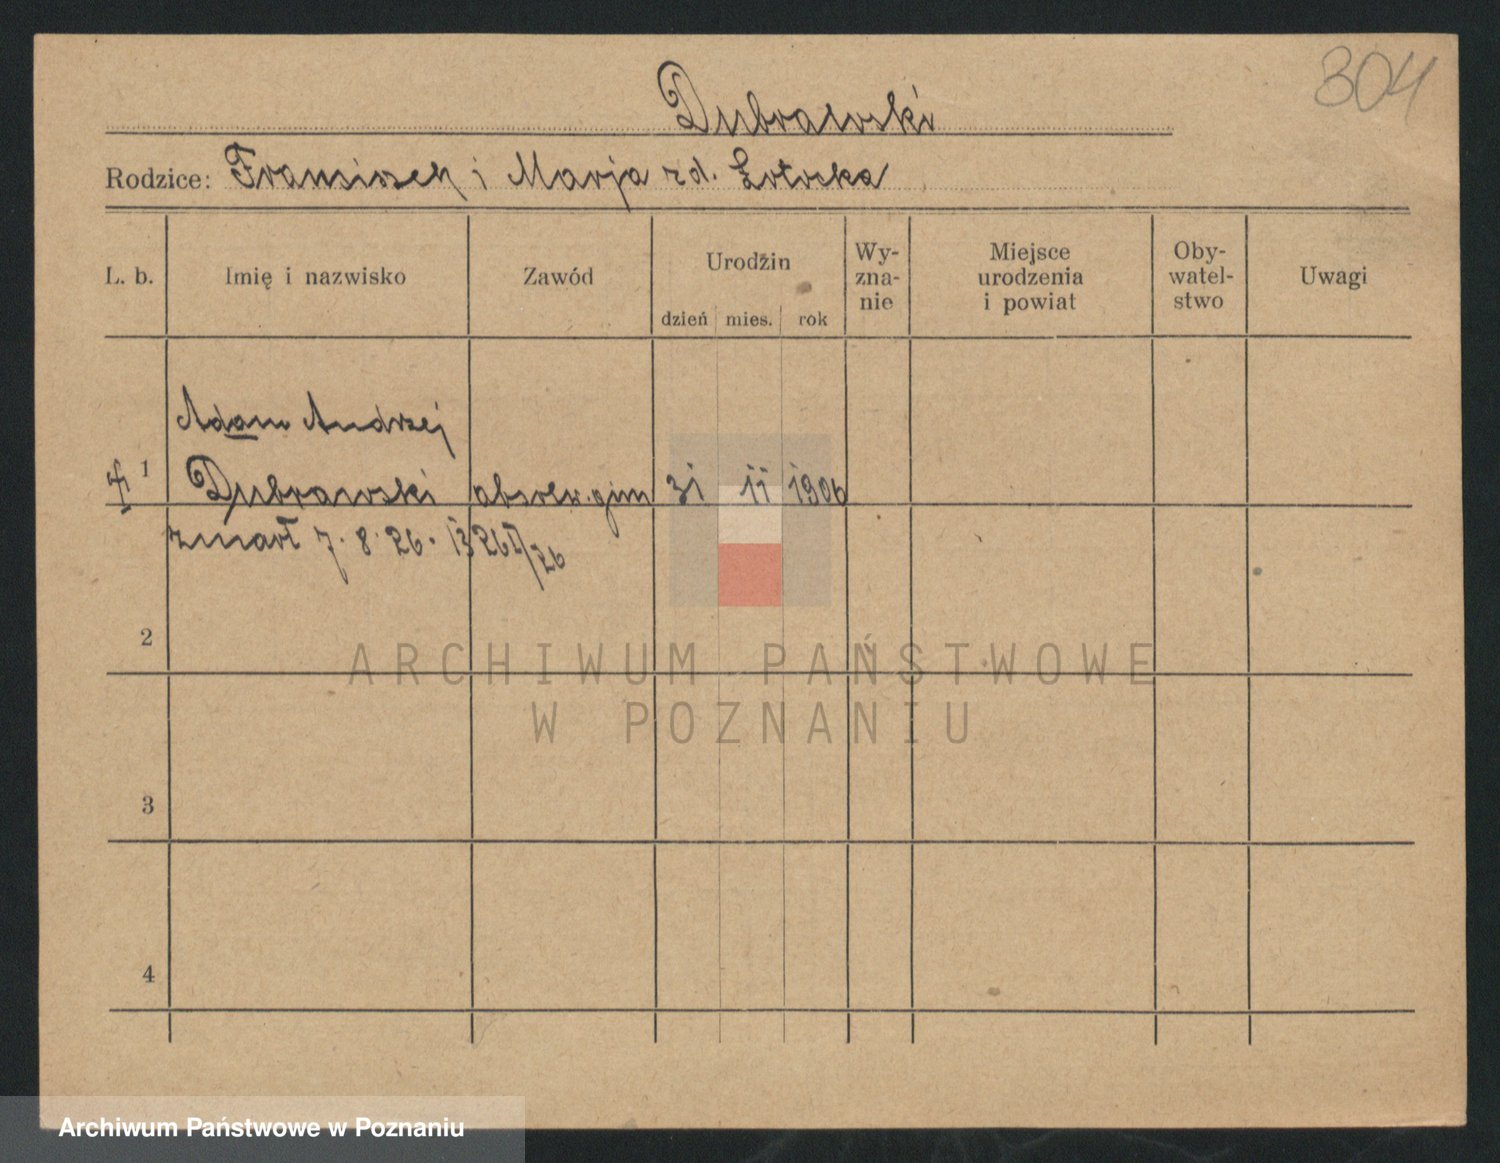 304
Dubrawski
Rodzice: Franciszek i Marja zd. Łotocka
L. b.
Imię i nazwisko
Zawód
Urodzin
dzień mies. rok
Wy-
zna-
nie
Miejsce
urodzenia
i powiat
Oby-
watel-
stwo
Uwagi
Adam Andrzej
1 Dubrawski absolw. gim 31 11 1906
zmarł 7. 8. 26.
2
3
4
ARCHIWUM PAŃSTWOWE
W POZNANIU
Archiwum Państwowe w Poznaniu